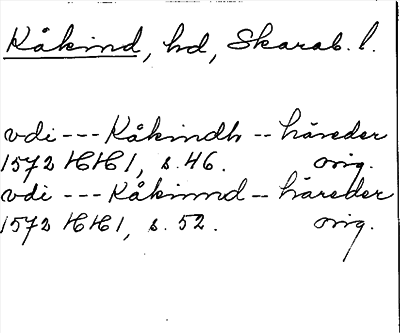 Kåkind, hd, Skarab. l.
vdi --- Kåkindh -- häreder
1572 HH 1, s. 46. orig.
vdi --- Kåkinnd -- häreder
1572 HH 1, s. 52. orig.